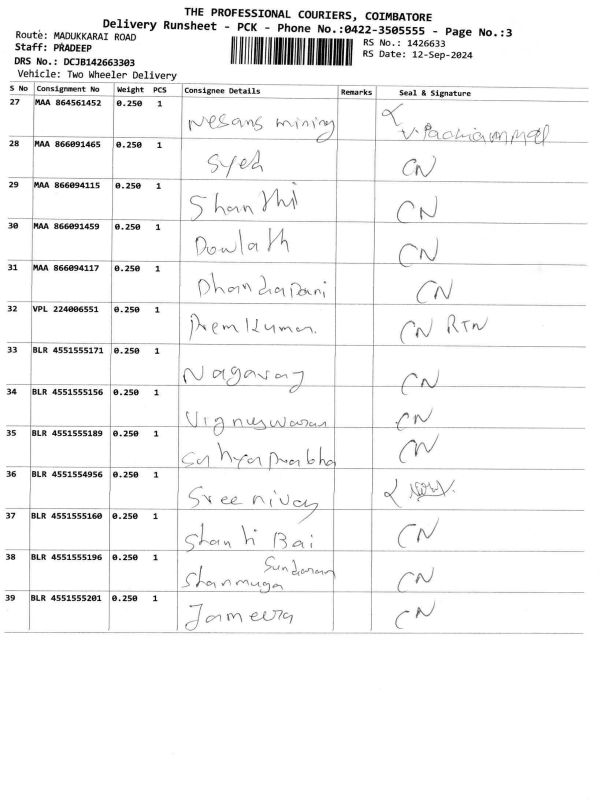 THE PROFESSIONAL COURIERS, COIMBATORE
Delivery Runsheet - PCK - Phone No.:0422-3505555 - Page No.:3
Route: MADUKKARAI ROAD
RS No.: 1426633
Staff: PRADEEP
RS Date: 12-Sep-2024
DRS No.: DCJB142663303
Vehicle: Two Wheeler Delivery
S No Consignment No Weight PCS Consignee Details Remarks Seal & Signature
27 MAA 864561452 0.250 1 Nesans mining
28 MAA 866091465 0.250 1 Syed CN
29 MAA 866094115 0.250 1 Shanthi CN
30 MAA 866091459 0.250 1 Dowlath CN
31 MAA 866094117 0.250 1 Dhandapani CN
32 VPL 224006551 0.250 1 Premkumar. CN RTN
33 BLR 4551555171 0.250 1 Nagaraj CN
34 BLR 4551555156 0.250 1 Vigneswaran CN
35 BLR 4551555189 0.250 1 Sathyaprabha CN
36 BLR 4551554956 0.250 1 Sreenivas
37 BLR 4551555160 0.250 1 Shanti Bai CN
38 BLR 4551555196 0.250 1 Shanmuga Sundaram CN
39 BLR 4551555201 0.250 1 Jameera CN